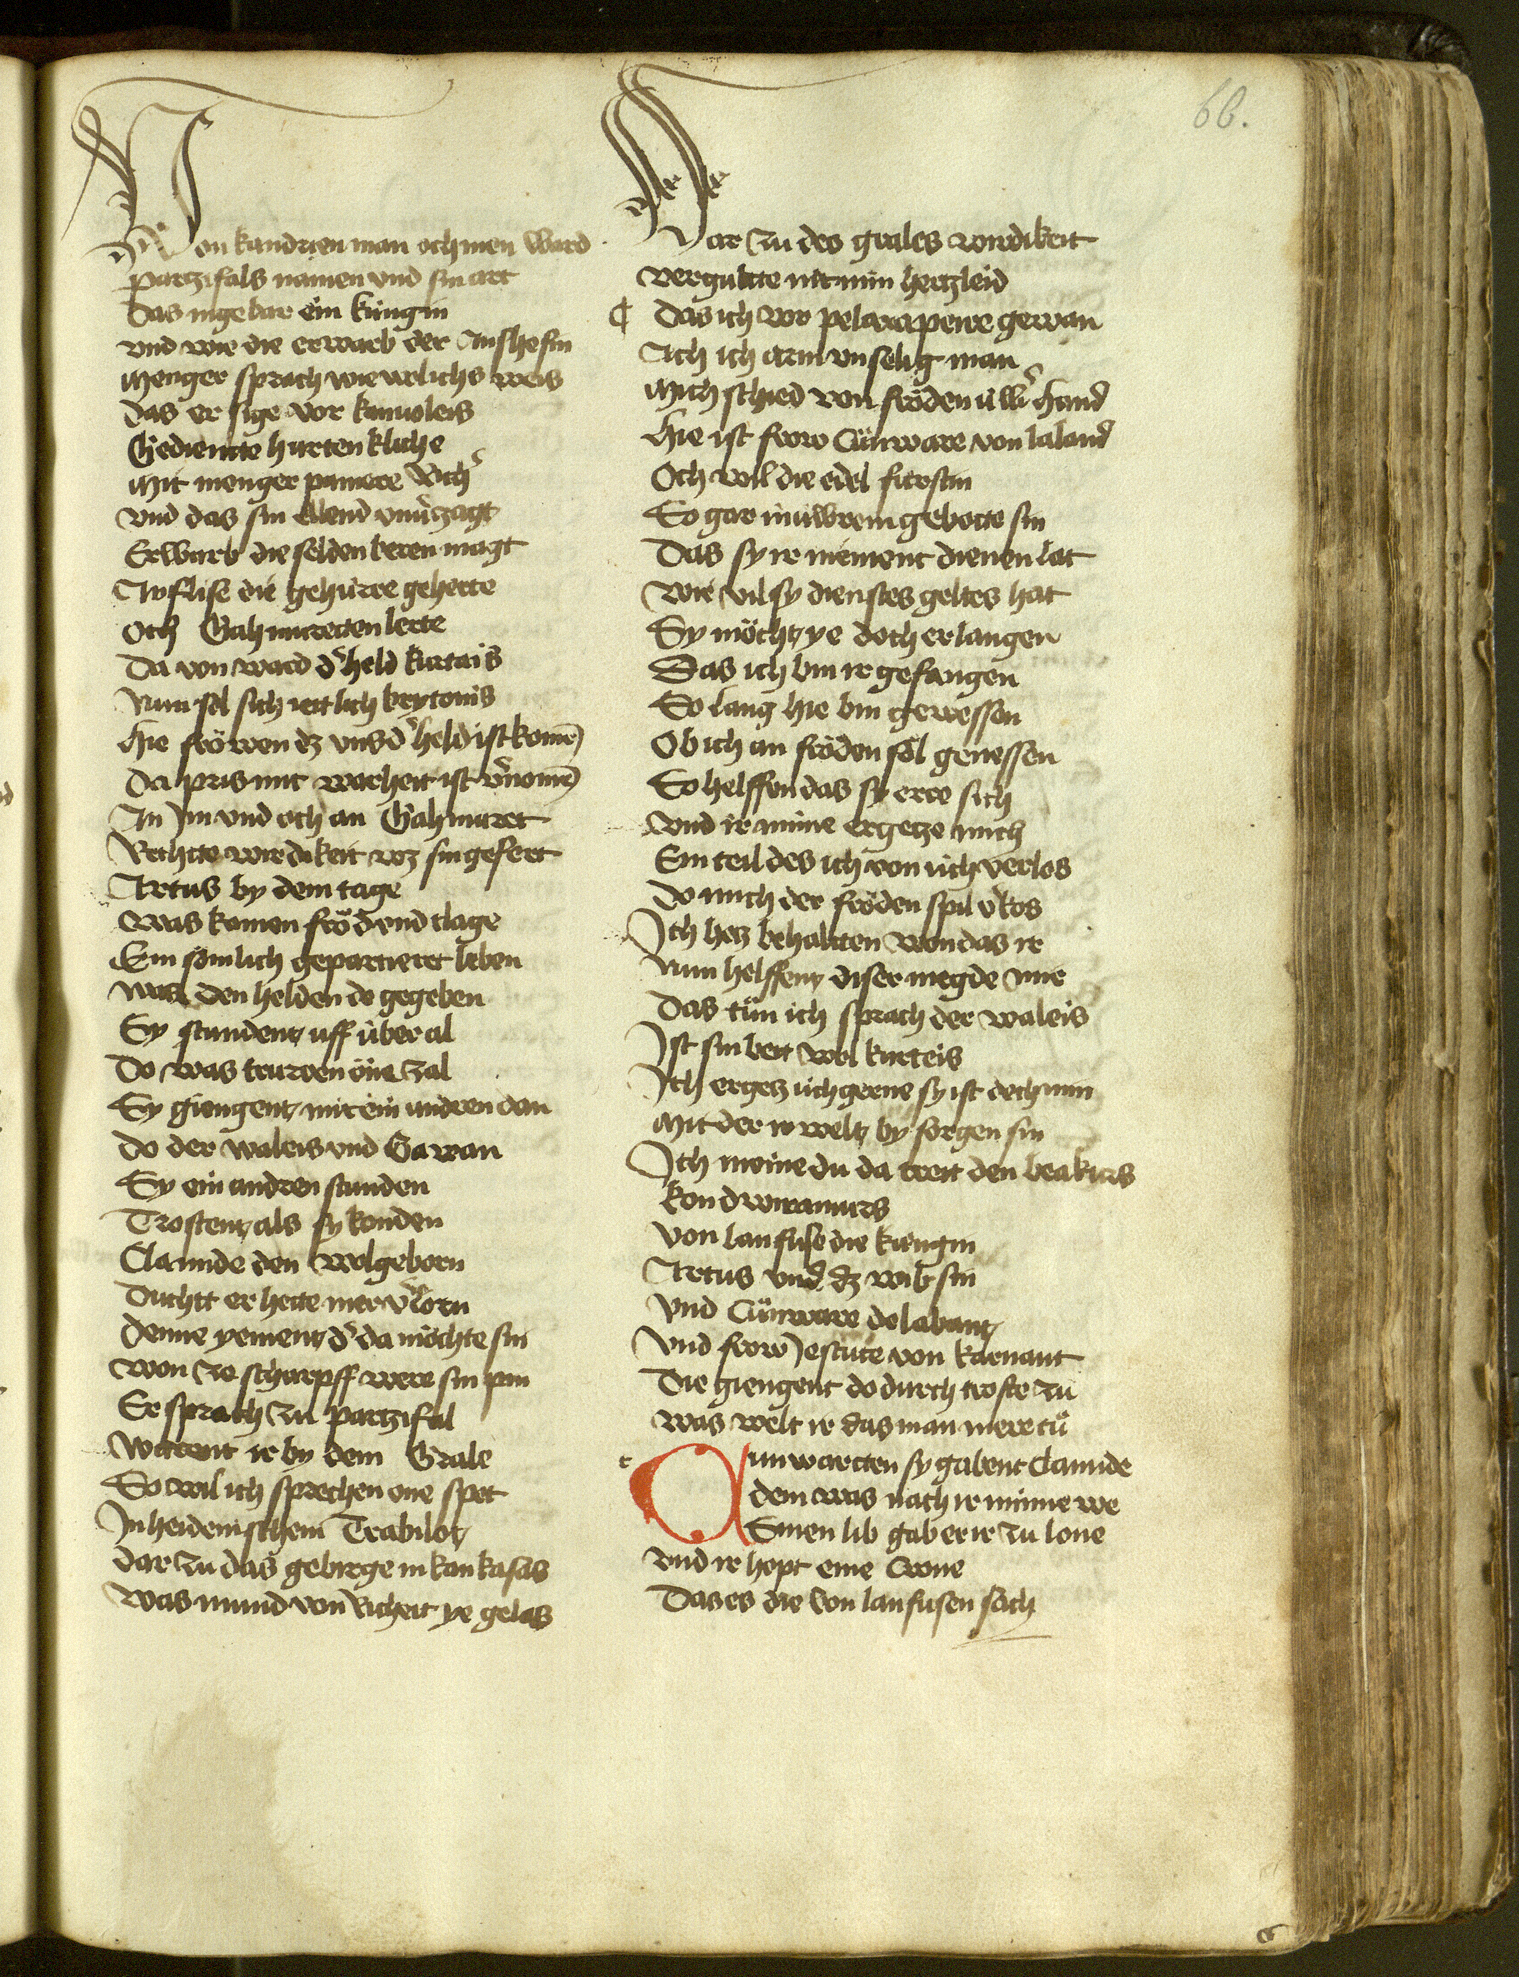 66.
Von kandrien man och men ward
partzifals namen vnd sin art
Das in gebar ein kungin
vnd wie die erwarb der Anshefin
Menger sprach wie wrlichs weis
das er sige vor kanuoleis
Gediente hurten kliche
Mit menger paniere
vnd das sin ellend vnu'zagt
Erwarb die selden beren magt
Anflise die gehure gehette
och Gahmuretten lerte
Da von ward d' held kurtais
Nun sol sich iertlich brytonis
Hie fröwen dz vns d' held ist komē
Da pris mit warheit ist v'nomē
An Im vnd och an Gahmuret
Rechtte wirdikeit wz sin gefert
Artus by dem tage
was komen fröd vnd clage
Ein sömlich gepartieret leben
was den helden do gegeben
Sy stundent uff über al
Do was truren one zal
Sy giengent mit ein andren dan
do der waleis vnd Gawan
Sy ein andren stunden
Trostent als sy konden
Clamide den wolgeborn
Duchtt er hette mer v'lorn
denne yement d' da möchte sin
won ze scharpff were sin pin
Er sprach zu partzifal
warent ir by dem Grale
So wil ich sprechen one spot
In heidenischem Trabilot
dar zu das gebirge in kankasas
was mund von richeit ye gelas
Dar zu des grales wirdikeit
vergultte nit min hertzleid
Das ich vor pelwrapeire gewan
Ach ich arm vnselig man
Mich schied von fröden üw' hand
Hie ist frow Cünware von laland
Och wil die edel fürstin
So gar in üwrem gebotte sin
Das sy ir niement dienen lat
wie vil sy dienstes geltes hat
Sy möcht ye doch erlangen
Das ich bin ir gefangen
So lang hie bin gewessen
Ob ich an fröden sol genessen
So helffen das sy erre sich
vnd ir mine ergetze mich
Ein teil des ich von üch verlos
do mich der fröden spil v'kos
Ich hetz behaltten won das ir
Nun helffent diser megde mir
Das tün ich sprach der waleis
Ist sin bett wol kurteis
Ich ergetz üch gerne sy ist doch min
Mit der ir welt by sorgen sin
Ich meine du da treit den beakurs
kondwiramurs
von lanfuse die kungin
Artus vnd dz wib sin
vnd Cünware de labant
vnd frow Jestute von karnant
Die giengent do durch troste zu
was welt ir das man mere tü
Cunwartten sy gabent clamide
dem was nach ir minne we
Sinen lib gab er ir zu lone
vnd ir hopt eine crone
Das es die von lanfusen sach